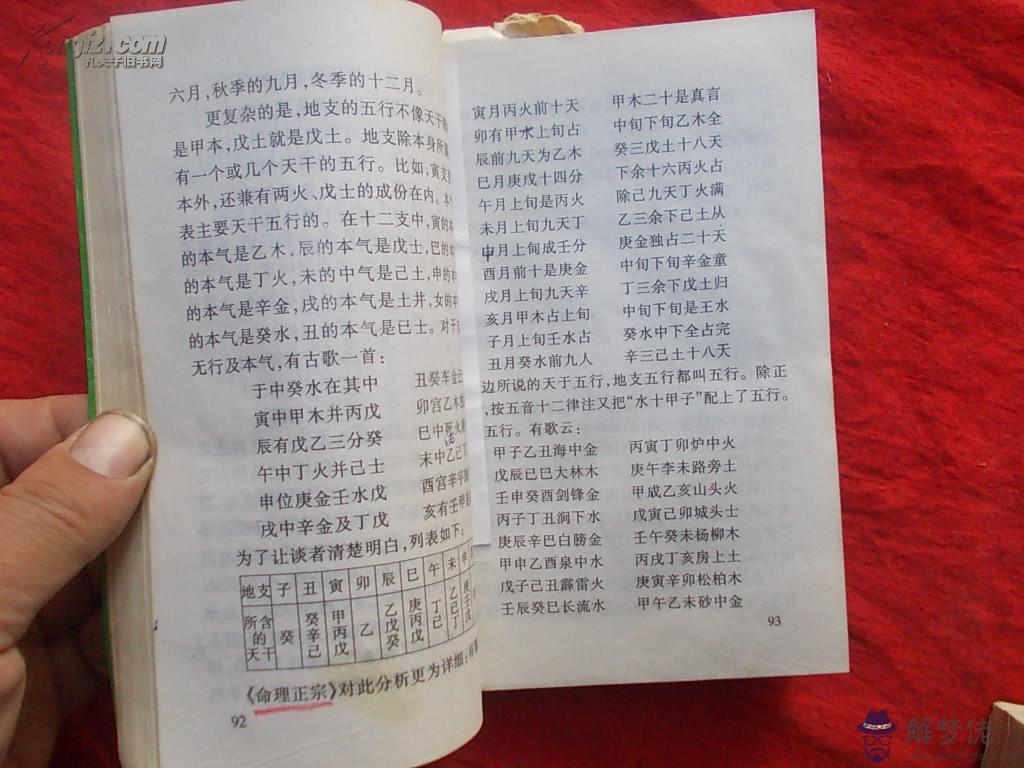 Kongfz.com
孔夫子旧书网
六月,秋季的九月,冬季的十二月。
更复杂的是,地支的五行不像天干
是甲本,戊土就是戊土。地支除本身所
有一个或几个天干的五行。比如,寅支
本外,还兼有两火、戊士的成份在内。本
表主要天干五行的。在十二支中,寅的本
的本气是乙木,辰的本气是戊士,巳的本
的本气是丁火,未的中气是己土,申的本
的本气是辛金,戌的本气是土井,女的本
的本气是癸水,丑的本气是已士。对于
无行及本气,有古歌一首:
于中癸水在其中 丑癸车金
寅中甲木并丙戊 卯宫乙木
辰有戊乙三分癸 巳中
午中丁火并己士 末中乙己丁
申位庚金壬水戊 酉宫辛字
戌中辛金及丁戊 亥有壬甲
为了让谈者清楚明白,列表如下:
地支 子 丑 寅 卯 辰 巳 午 未 申
所含的天干 癸 癸辛己 甲丙戊 乙 乙戊癸 庚丙戊 丁已 乙已丁 庚壬戊
《命理正宗》对此分析更为详细:
92
寅月丙火前十天 甲木二十是真言
卯有甲木上旬占 中旬下旬乙木全
辰前九天为乙木 癸三戊土十八天
巳月庚戊十四分 下余十六丙火占
午月上旬是丙火 除己九天丁火满
未月上旬九天丁 乙三余下己土从
申月上旬成壬分 庚金独占二十天
酉月前十是庚金 中旬下旬辛金童
戌月上旬九天辛 丁三余下戊土归
亥月甲木占上旬 中旬下旬是王水
子月上旬壬水占 癸水中下全占完
丑月癸水前九人 辛三己土十八天
边所说的天于五行,地支五行都叫五行。除正
,按五音十二律注又把“水十甲子”配上了五行。
五行。有歌云:
甲子乙丑海中金 丙寅丁卯炉中火
戊辰已巳大林木 庚午李未路旁土
壬申癸酉剑锋金 甲成乙亥山头火
丙子丁丑涧下水 戊寅己卯城头士
庚辰辛巴白膀金 壬午癸未杨柳木
甲申乙酉泉中水 丙戌丁亥房上土
戊子己丑霹雷火 庚寅辛卯松柏木
壬辰癸巳长流水 甲午乙未砂中金
93
解梦佬